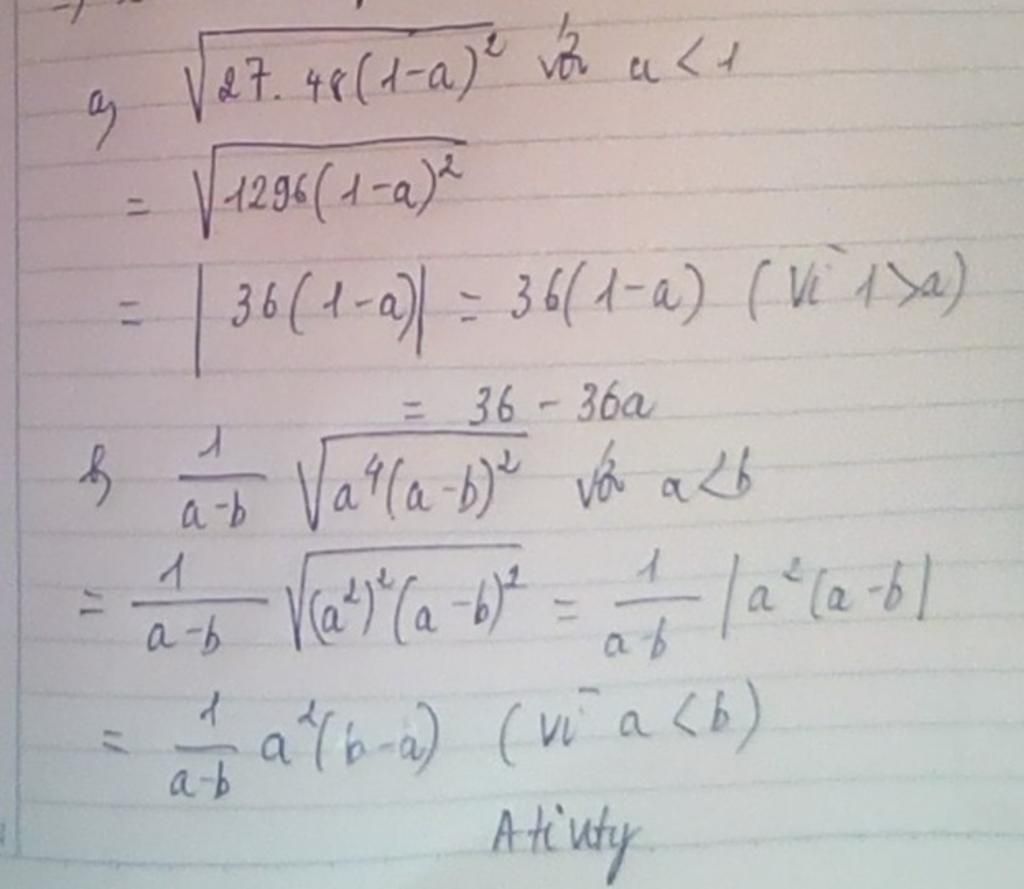 a) √27. 48(1-a)² với a < 1
= √1296(1-a)²
= | 36(1-a)| = 36(1-a) (Vì 1>a)
= 36 - 36a
b) 1/a-b √a⁴(a-b)² với a<b
= 1/a-b √(a²)²(a-b)² = 1/a-b |a²(a-b|
= 1/a-b a²(b-a) (vì a<b)